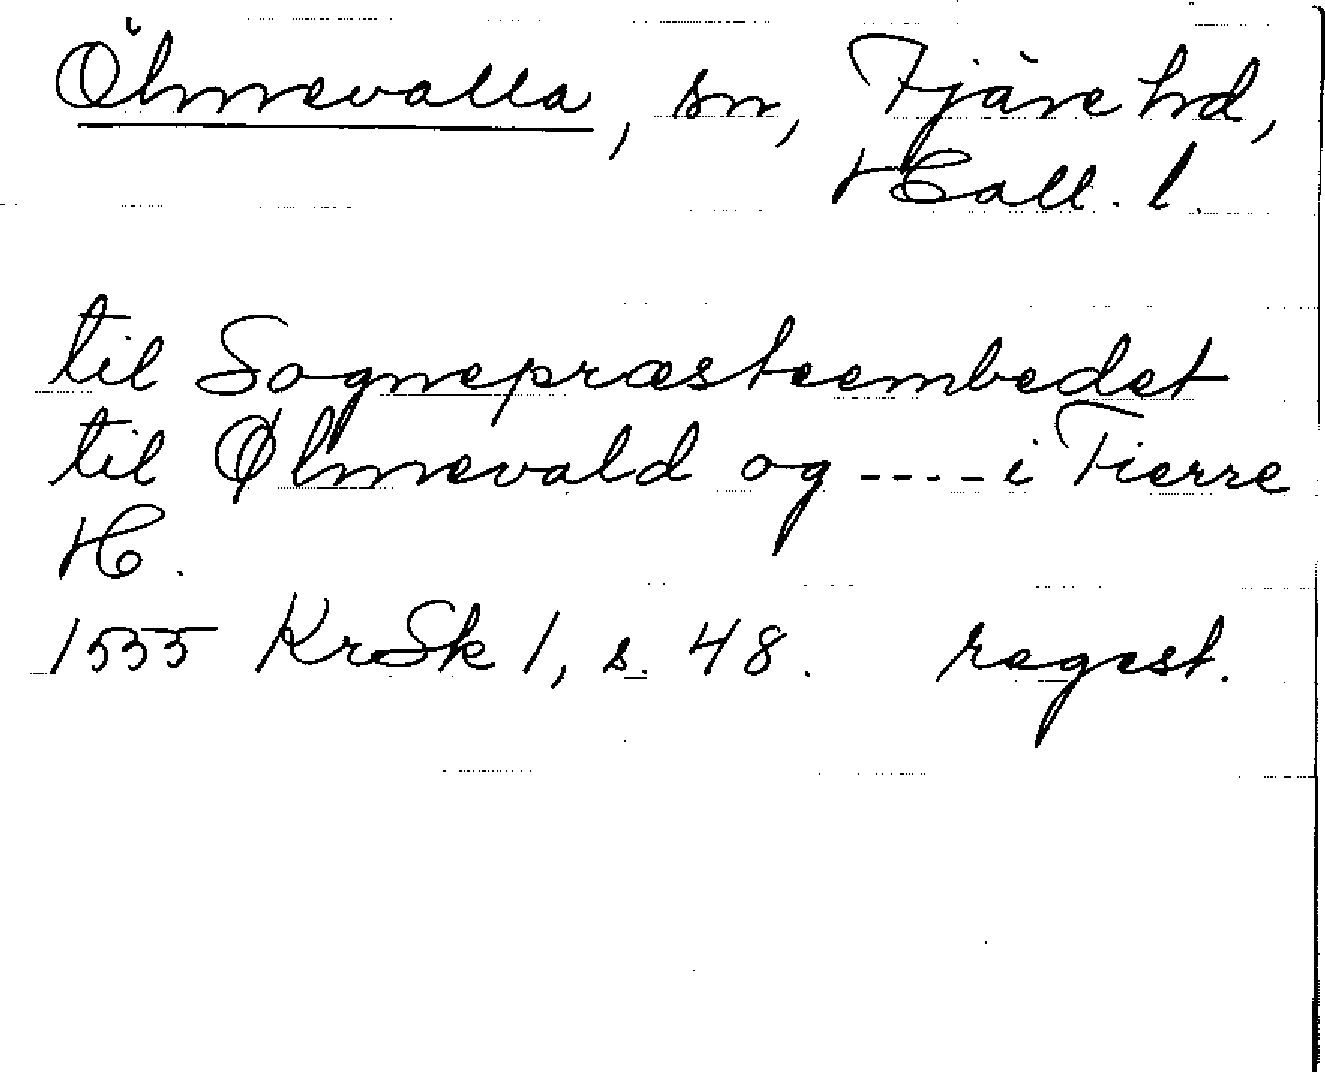 Ölmevalla, sn, Fjäre hd,
Hall. l.
til Sognepræsteembedet
til Ølmevald og ---- i Fierre
H.
1555 KrSk 1, s. 48. regest.